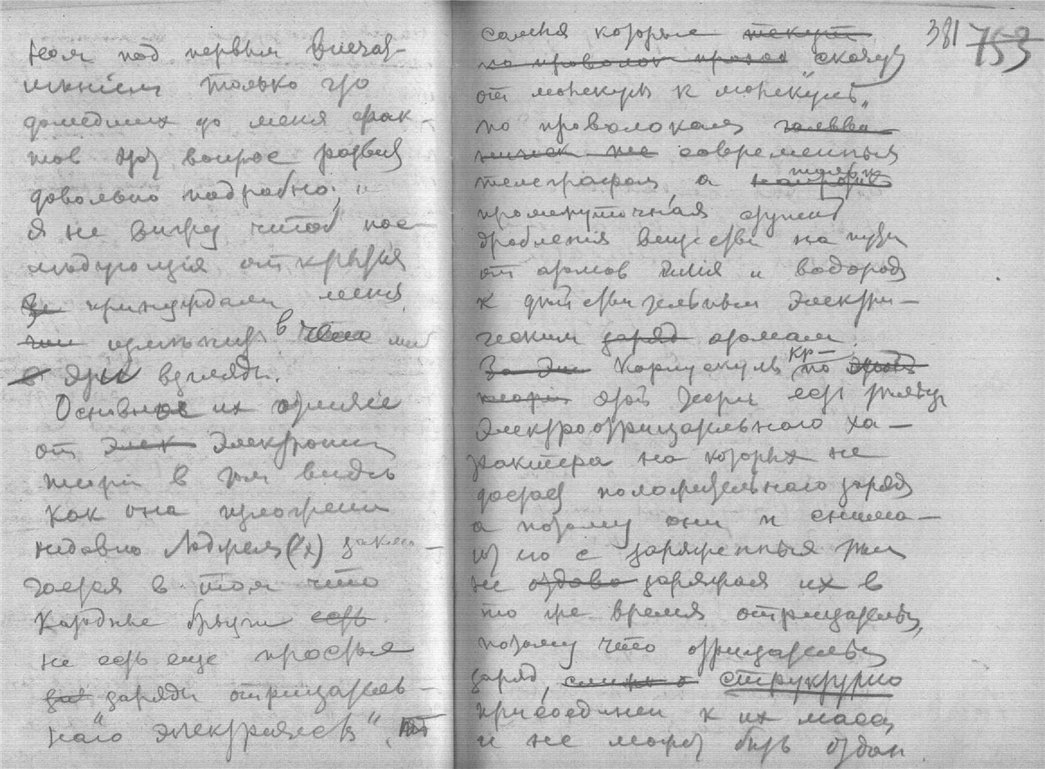 ном под первым впечат-
лением только что
дошедших до меня фак-
тов этот вопрос развит
довольно подробно,
Я не вижу чтоб пос-
ледующия открытия
принуждали меня
изменить в чем
эти взгляды.
Основное их отличие
от Элек Электронной
теории в том виде
как она изложена
недавно Лоджем (1) заклю-
чается в том что
Катодные брызги есть
не есть еще простые
заряды отрицатель-
наго „электричества",
381 753
самыя которые текут
по проволок скачут
от молекулы к молекуле",
по проволокам
современных
телеграфов, а только
промежуточная стужень
дробления вещества на пути
от атомов гелия и водорода
к действительным Электри-
ческим заряд атомам.
За Эти Корпускулы по
теории этой теории есть тельца
Электроотрицательного ха-
рактера на которых не
достает положительнаго заряда
а потому они и снима-
ют его с заряженных тел
не отдава заряжая их в
то же время отрицательно,
потому что отрицательный
заряд, структурно
присоединен к их массе
и не может быть отдан